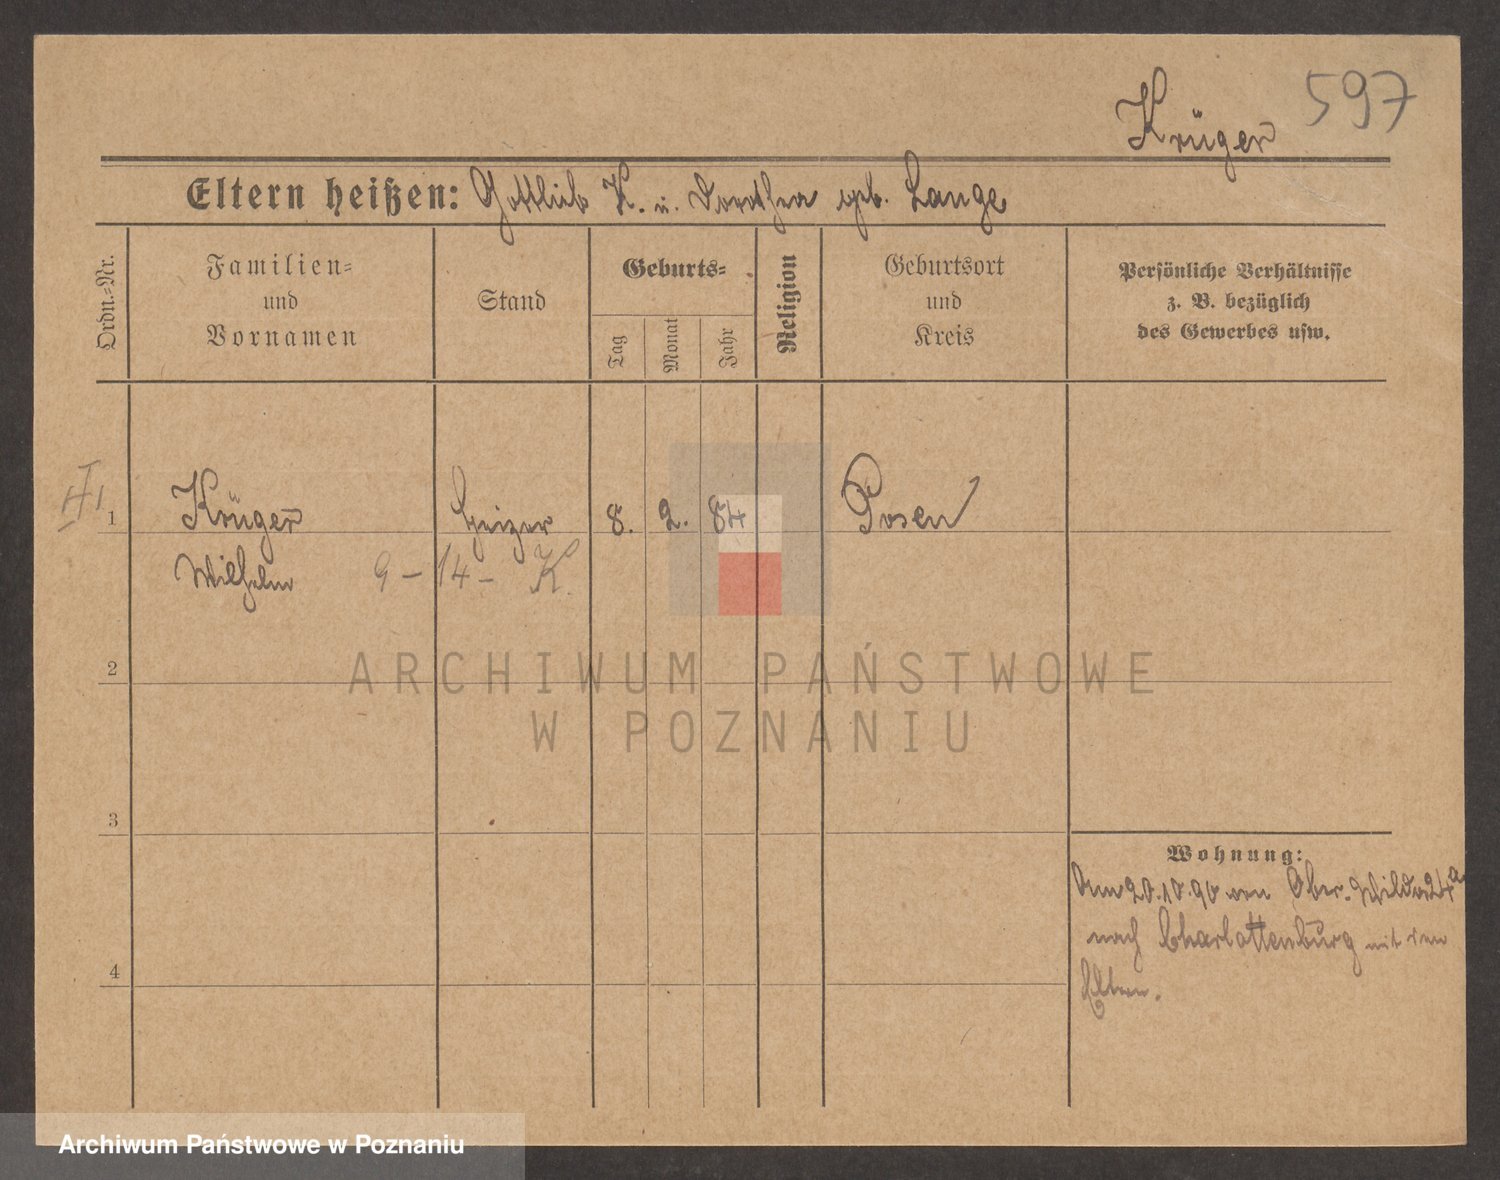 597
Krüger
Eltern heißen: Gottlieb K. u. Dorothea geb. Lange
Ordn.-Nr.
Familien-
und
Vornamen
Stand
Geburts-
Tag
Monat
Jahr
Religion
Geburtsort
und
Kreis
Persönliche Verhältnisse
z. B. bezüglich
des Gewerbes usw.
1
Krüger
Heizer
8.
2.
84
Posen
Wilhelm
9-14-K.
2
3
4
Wohnung:
Am 20.10.90 von Ober-Wilda 24a
nach Charlottenburg mit den
Eltern.
ARCHIWUM PAŃSTWOWE
W POZNANIU
Archiwum Państwowe w Poznaniu